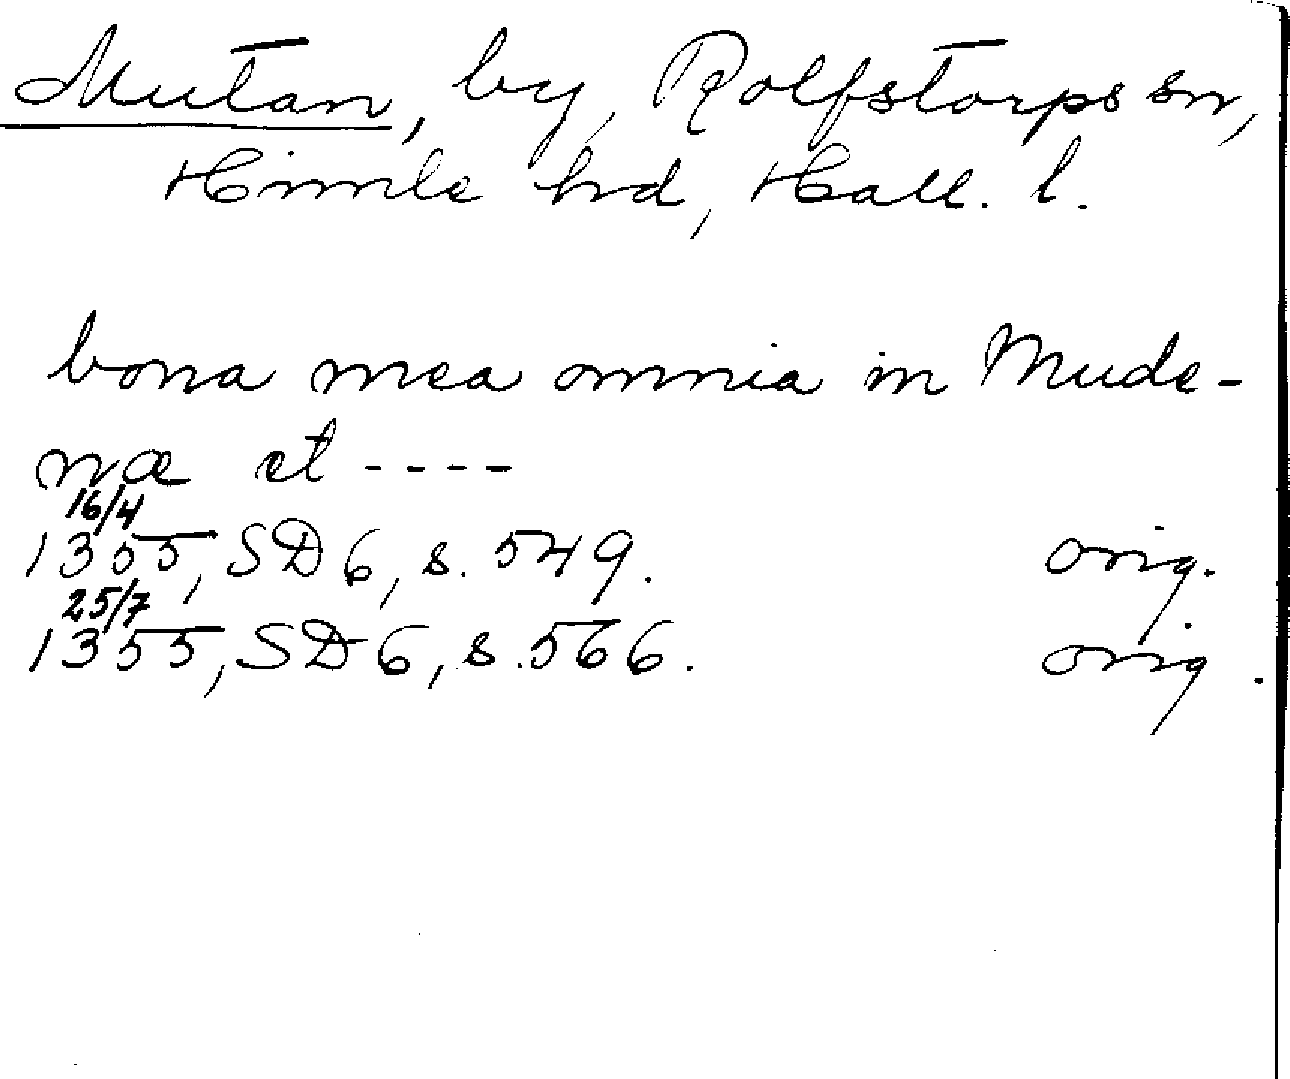 Mutan, by, Rolfstorps sn,
Himle hd, Hall. l.
bona mea omnia in Mude-
næ et ----
16/4
1355, SD 6, s. 549. orig.
25/7
1355, SD 6, s. 566. orig.